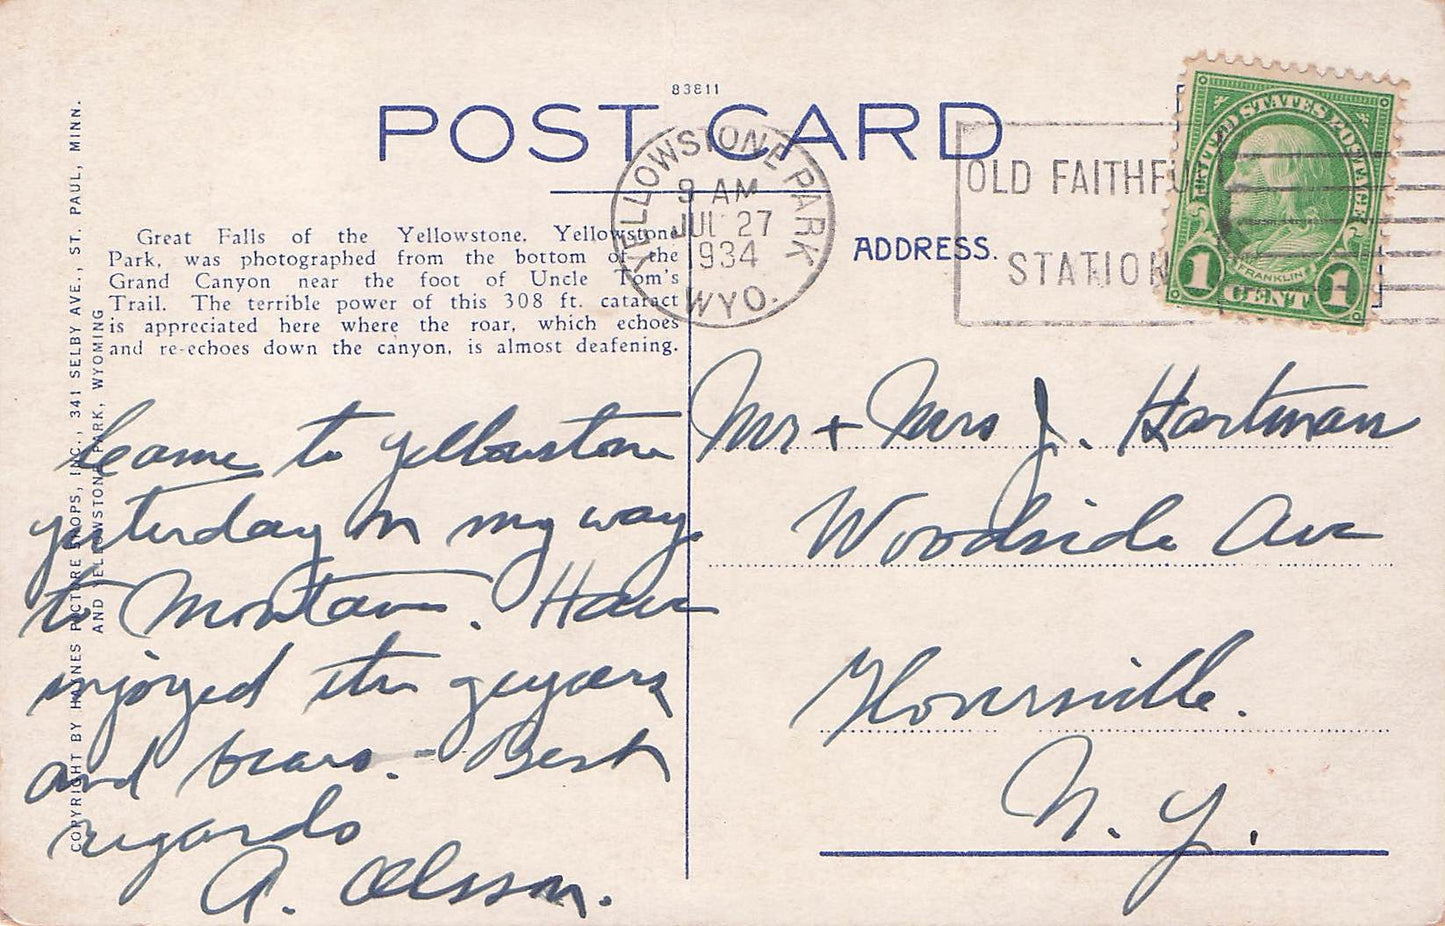 83811
POST CARD
YELLOWSTONE PARK
9 AM
JUL 27
1934
WYO.
OLD FAITHFU
STATION
UNITED STATES POSTAGE
FRANKLIN
1 CENT 1
ADDRESS.
Great Falls of the Yellowstone, Yellowstone
Park, was photographed from the bottom of the
Grand Canyon near the foot of Uncle Tom's
Trail. The terrible power of this 308 ft. cataract
is appreciated here where the roar, which echoes
and re-echoes down the canyon, is almost deafening.
COPYRIGHT BY HAYNES PICTURE SHOPS, INC., 341 SELBY AVE., ST. PAUL, MINN.
AND YELLOWSTONE PARK, WYOMING
Came to Yellowstone
yesterday on my way
to Montana. Have
enjoyed the geysers
and bears. - Best
regards
A. Olsson.
Mr + Mrs J. Hartman
Woodside Ave
N. Y.